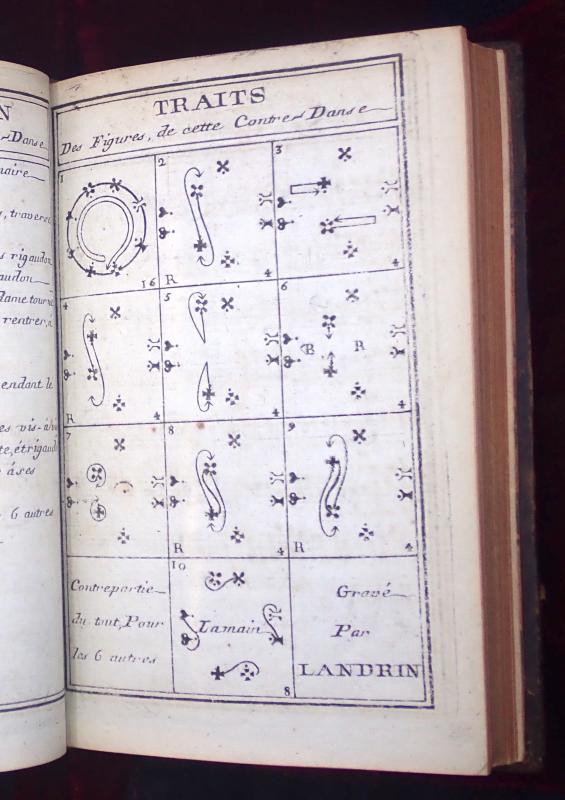 N
Danse
naire
s, traverse
s rigaudon
audon
Dame tourne
rentrer, à
endant le
es vis-à-
te, et rigaud
âses
6 autres
TRAITS
Des Figures, de cette Contre Danse
1
16
2
R
4
3
4
4
R
4
5
4
6
B
R
4
7
8
R
4
9
R
4
Contrepartie
du tout, Pour
les 6 autres
10
La main
8
Gravé
Par
LANDRIN